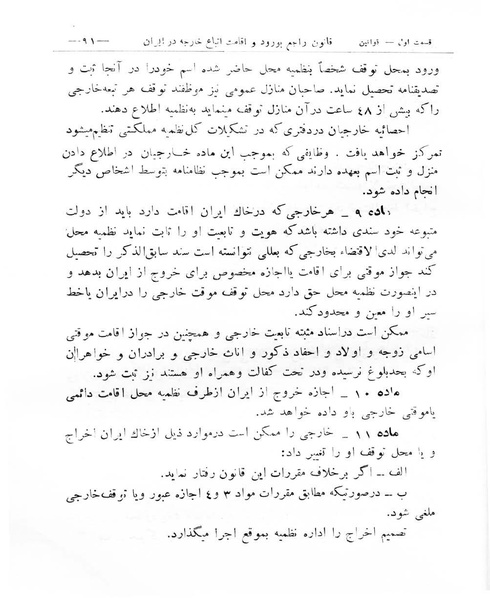 قسمت اول — قوانین    قانون راجع بورود و اقامت اتباع خارجه در ایران    —۹۱—
ورود بمحل توقف شخصاً بنظمیه محل حاضر شده اسم خودرا در آنجا ثبت و
تصدیقنامه تحصیل نماید. صاحبان منازل عمومی نیز موظفند توقف هر تبعه‌خارجی
راکه بیش از ۴۸ ساعت درآن منازل توقف مینماید به‌نظمیه اطلاع دهند.
احصائیه خارجیان دردفتری‌که در تشکیلات کل‌نظمیه مملکتی تنظیم‌میشود
تمرکز خواهد یافت . وظایفی که بموجب این ماده خارجیان در اطلاع دادن
منزل و ثبت اسم بعهده دارند ممکن است بموجب نظامنامه بتوسط اشخاص دیگر
انجام داده شود.
ماده ۹ _ هر خارجی‌که درخاك ایران اقامت دارد باید از دولت
متبوعه خود سندی داشته باشدکه هویت و تابعیت او را ثابت نماید نظمیه محل
می‌تواند لدی‌الاقتضاء بخارجی‌که بعللی نتوانسته است سند سابق‌الذکر را تحصیل
کند جواز موقتی برای اقامت یااجازه مخصوص برای خروج از ایران بدهد و
در اینصورت نظمیه محل حق دارد محل توقف موقت خارجی را درایران یاخط
سیر او را معین و محدودکند.
ممکن است دراسناد مثبته تابعیت خارجی و همچنین در جواز اقامت موقتی
اسامی زوجه و اولاد و احفاد ذکور و اناث خارجی و برادران و خواهران
اوکه بحدبلوغ نرسیده ودر تحت کفالت وهمراه او هستند نیز ثبت شود.
ماده ۱۰ _ اجازه خروج از ایران ازطرف نظمیه محل اقامت دائمی
یاموقتی خارجی باو داده خواهد شد.
ماده ۱۱ _ خارجی را ممکن است درموارد ذیل ازخاك ایران اخراج
و یا محل توقف او را تغییر داد:
الف _ اگر برخلاف مقررات این قانون رفتار نماید.
ب _ درصورتیکه مطابق مقررات مواد ۳ و ۴ اجازه عبور ویا توقف‌خارجی
ملغی شود.
تصمیم اخراج را اداره نظمیه بموقع اجرا میگذارد.